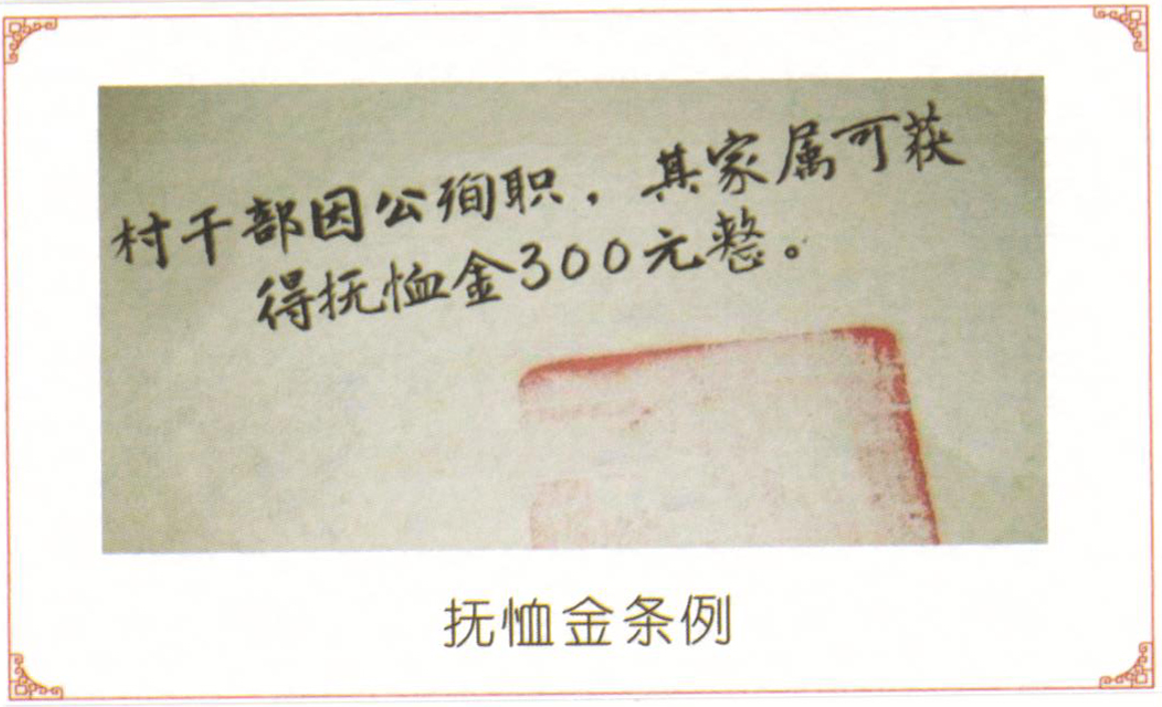 村干部因公殉职，其家属可获
得抚恤金300元整。
抚恤金条例